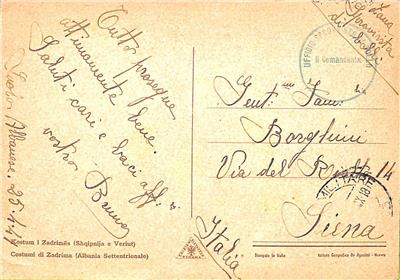 Tutto prosegue
ottimamente bene.
Saluti cari e baci aff.i
vostro Bruno
25-1-41
Kostum i Zadrimës (Shqipnija e Veriut)
Costumi di Zadrima (Albania Settentrionale)
UFFICIO
Il Comandante
Gent.ma Fam.
Borghini
Via del 14
Siena
Italia
MILITARE
Stampato in Italia
Istituto Geografico De Agostini - Novara